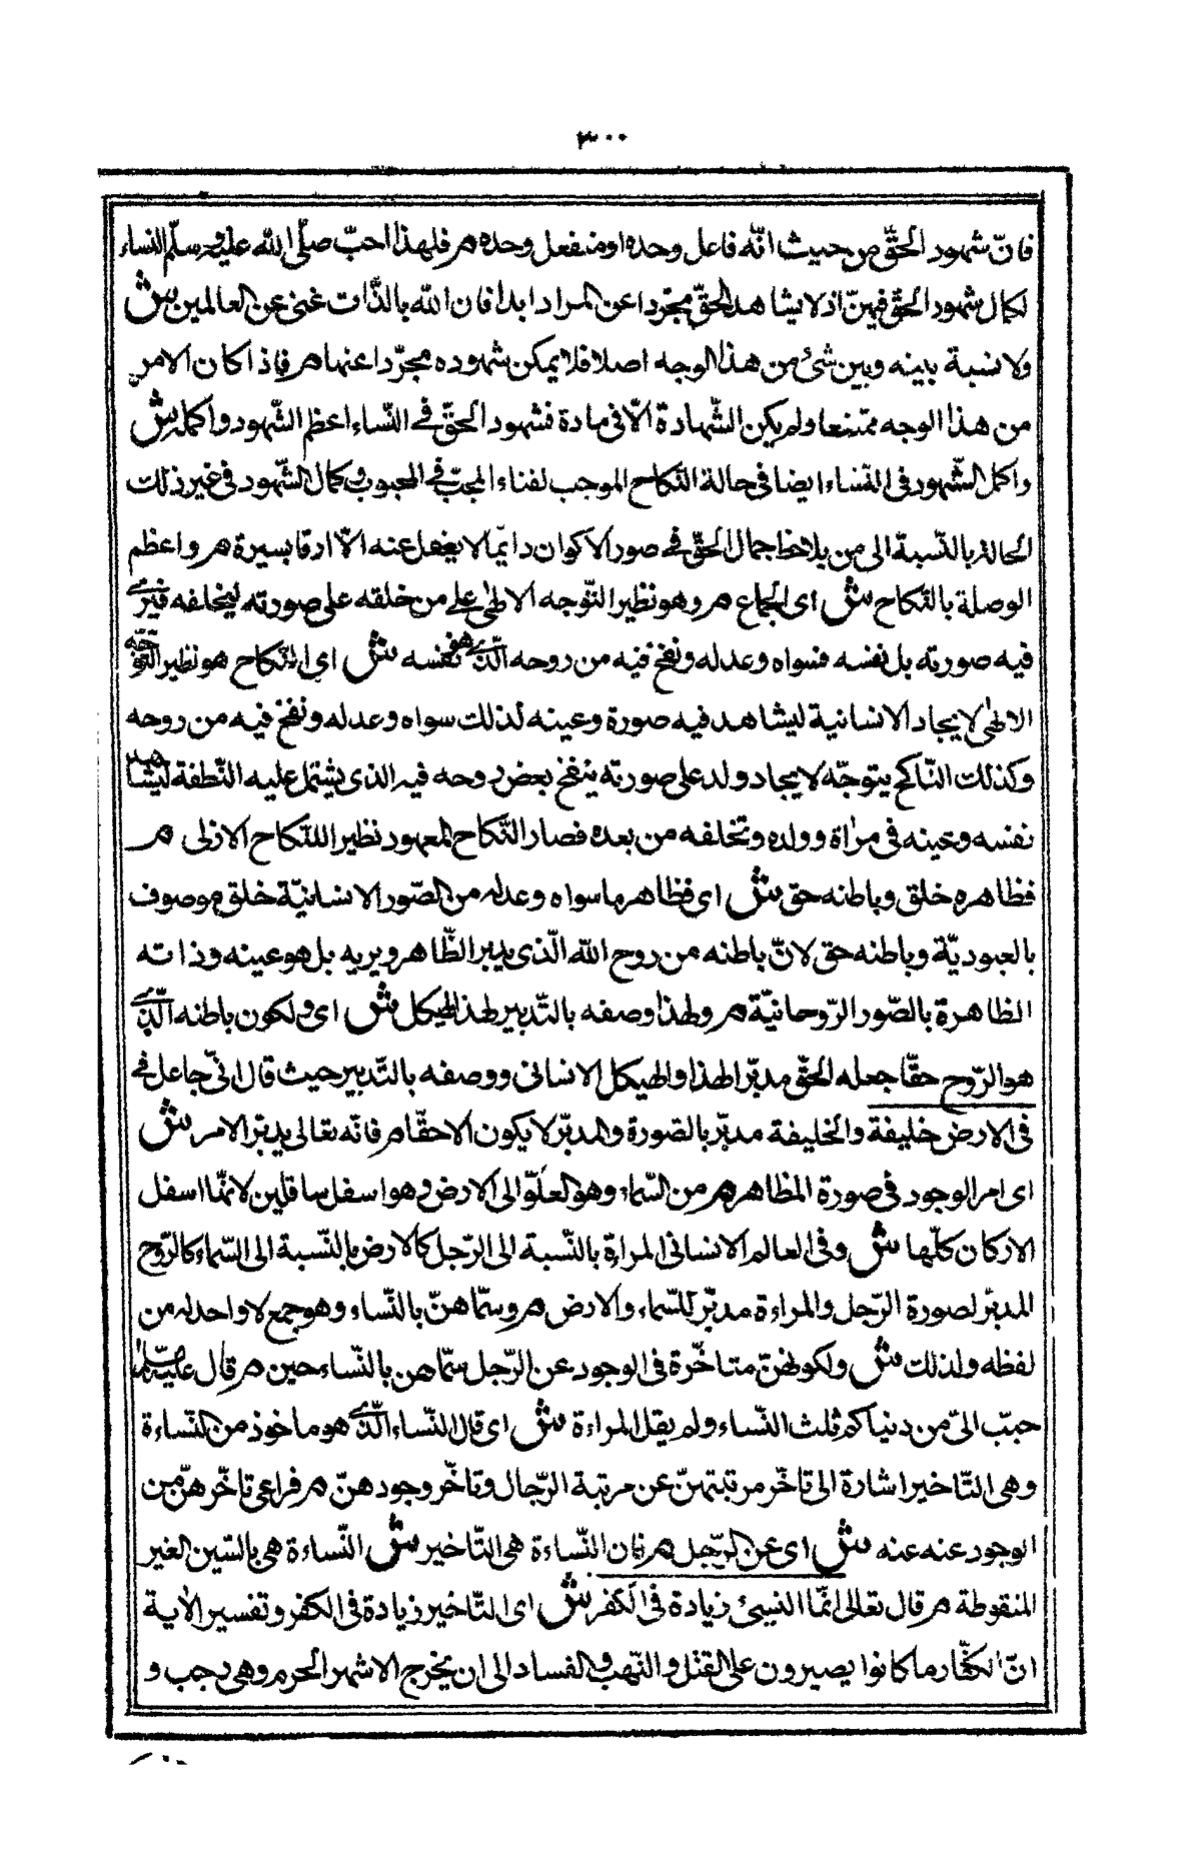 ٣٠٠
فانّ شهود الحقّ من حيث انّه فاعل وحده او منفعل وحده م فلهذا احبّ صلّى الله عليه وسلّم النساء
لكمال شهود الحقّ فيهنّ اذ لا يشاهد الحقّ مجرّدا عن المواد ابدا فان الله بالذّات غنى عن العالمين ش
ولا نسبة بينه وبين شئ من هذا الوجه اصلا فلا يمكن شهوده مجرّدا عنها م فاذا كان الامر
من هذا الوجه ممتنعا ولم يكن الشّهادة الّا فى مادة فشهود الحقّ فى النّساء اعظم الشّهود واكمله ش
واكمل الشّهود فى النّساء ايضا فى حالة النّكاح الموجب لفناء المحبّ فى المحبوب وكمال الشّهود فى غير ذلك
الحالة بالنّسبة الى من يلاحظ جمال الحقّ فى صور الاكوان دائما لا يغفل عنه الّا ارقا يسيرة م واعظم
الوصلة بالنّكاح ش اى الجماع م وهو نظير التّوجه الالهٰى على من خلقه على صورته ليخلفه فيرى
فيه صورته بل نفسه فسواه وعدله ونفخ فيه من روحه الّذى هو نفسه ش اى النّكاح هو نظير التّوجّه
الالهٰى لايجاد الانسانية ليشاهد فيه صورة وعينه لذلك سواه وعدله ونفخ فيه من روحه
وكذلك النّاكح يتوجّه لايجاد ولد على صورته ينفخ بعض روحه فيه الذى يشتمل عليه النّطفة ليشاهد
نفسه وعينه فى مرٰاة وولده وتخلفه من بعده فصار النّكاح المعهود نظير اللنّكاح الازلى م
فظاهره خلق وباطنه حق ش اى فظاهر ما سواه وعدله من الصّور الانسانيّة خلق موصوف
بالعبوديّة وباطنه حق لانّ باطنه من روح الله الّذى يدبر الظّاهر ويربه بل هو عينه وذاته
الظاهرة بالصّور الرّوحانيّة م ولهذا وصفه بالتّدبير لهذا الهيكل ش اى ولكون باطنه الّذى
هو الرّوح حقّا جعله الحقّ مدبّرا لهذا والهيكل الانسانى ووصفه بالتّدبير حيث قال انّى جاعل فى
فى الارض خليفة والخليفة مدبّر بالصّورة والمدبّر لا يكون الا حقّا م فانّه تعالى يدبّر الامر ش
اى امر الوجود فى صورة المظاهر م من السّماء وهو العلوّ الى الارض وهو اسفل سافلين لانّها اسفل
الاركان كلّها ش وفى العالم الانسانى المراة بالنّسبة الى الرّجل كالارض بالنّسبة الى السّماء كالرّوح
المدبّر لصورة الرّجل والمراءة مدبّر للسّماء والارض م وسمّاهنّ بالنّساء وهو جمع لا واحد له من
لفظه ولذلك ش ولكونهنّ متاخّرة فى الوجود عن الرّجل سمّاهن بالنّساء حين م قال عليه السّلام
حبّب الىّ من دنياكم ثلث النّساء ولم يقل المراءة ش اى قال النّساء الّذى هو ماخوذ من النّساءة
وهى التّاخير اشارة الى تاخّر مرتبتهنّ عن مرتبة الرّجال وتاخّر وجودهنّ م فراعى تاخّرهنّ من
الوجود عنه عنه ش اى عن الرّجل م فان النّساءة هى التّاخير ش النّساءة هى بالسّين الغير
المنقوطة م قال تعالى انّما النسئ زيادة فى الكفر ش اى التّاخير زيادة فى الكفر وتفسير الاٰية
انّ الكفّار ما كانوا يصبرون على القتل والنّهب والفساد الى ان يخرج الاشهر الحرم وهى رجب و